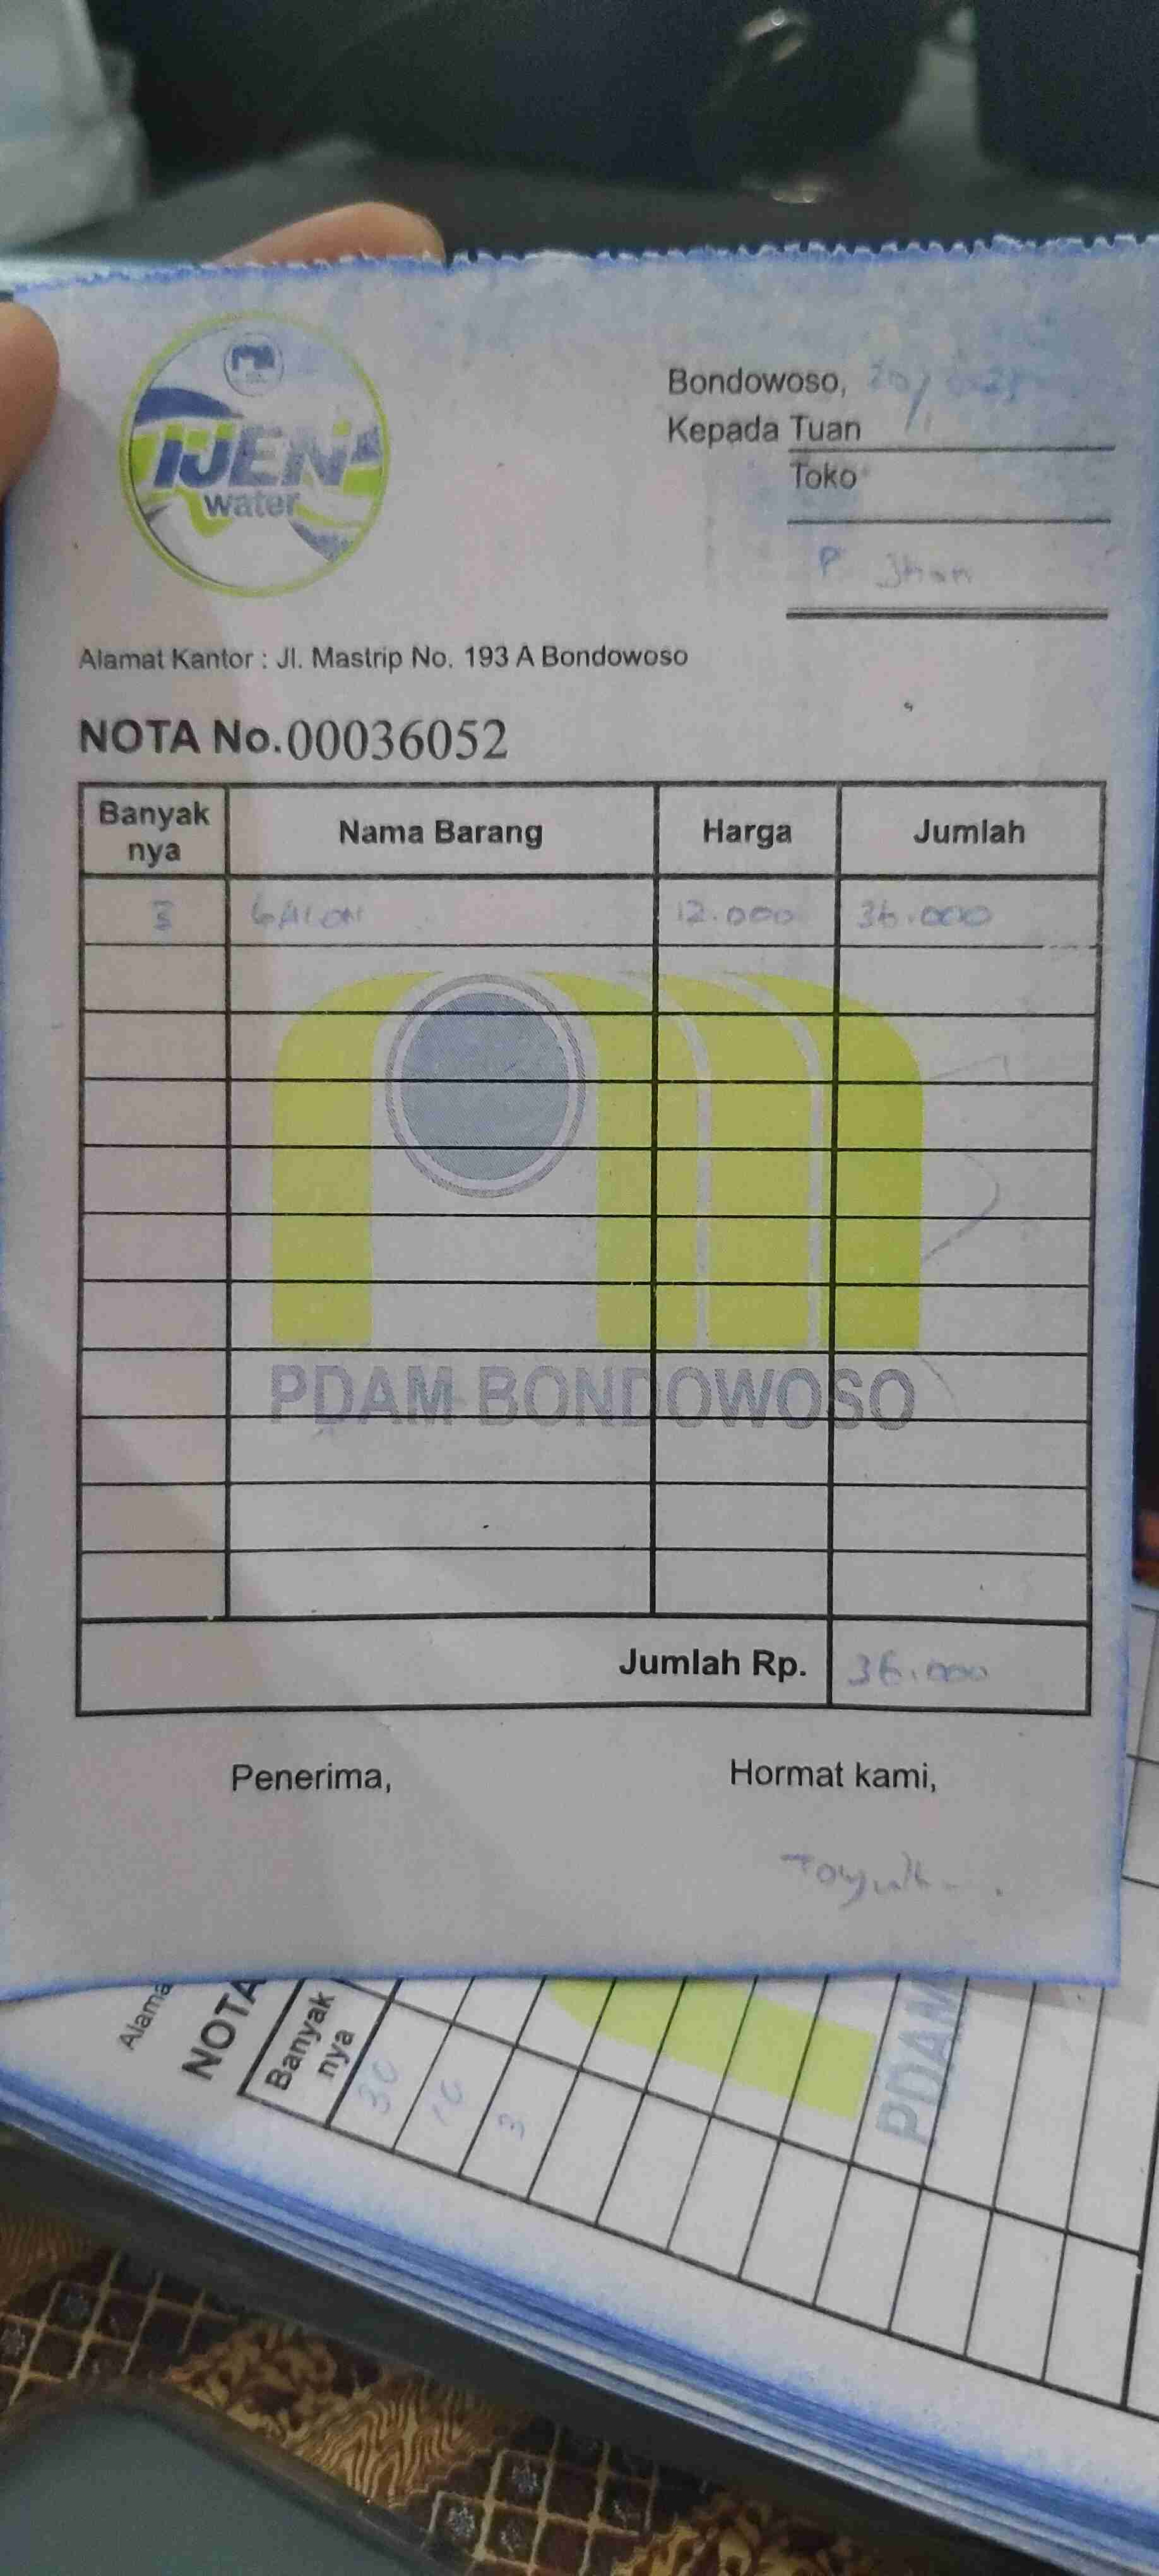 IJEN
water
Bondowoso,
Kepada Tuan
Toko
P
Alamat Kantor : Jl. Mastrip No. 193 A Bondowoso
NOTA No.00036052
Banyak nya Nama Barang Harga Jumlah
3 GALON 12.000 36.000
PDAM BONDOWOSO
Jumlah Rp. 36.000
Penerima, Hormat kami,
Alama
NOTA
Banyak
nya
30
16
3
PDAM